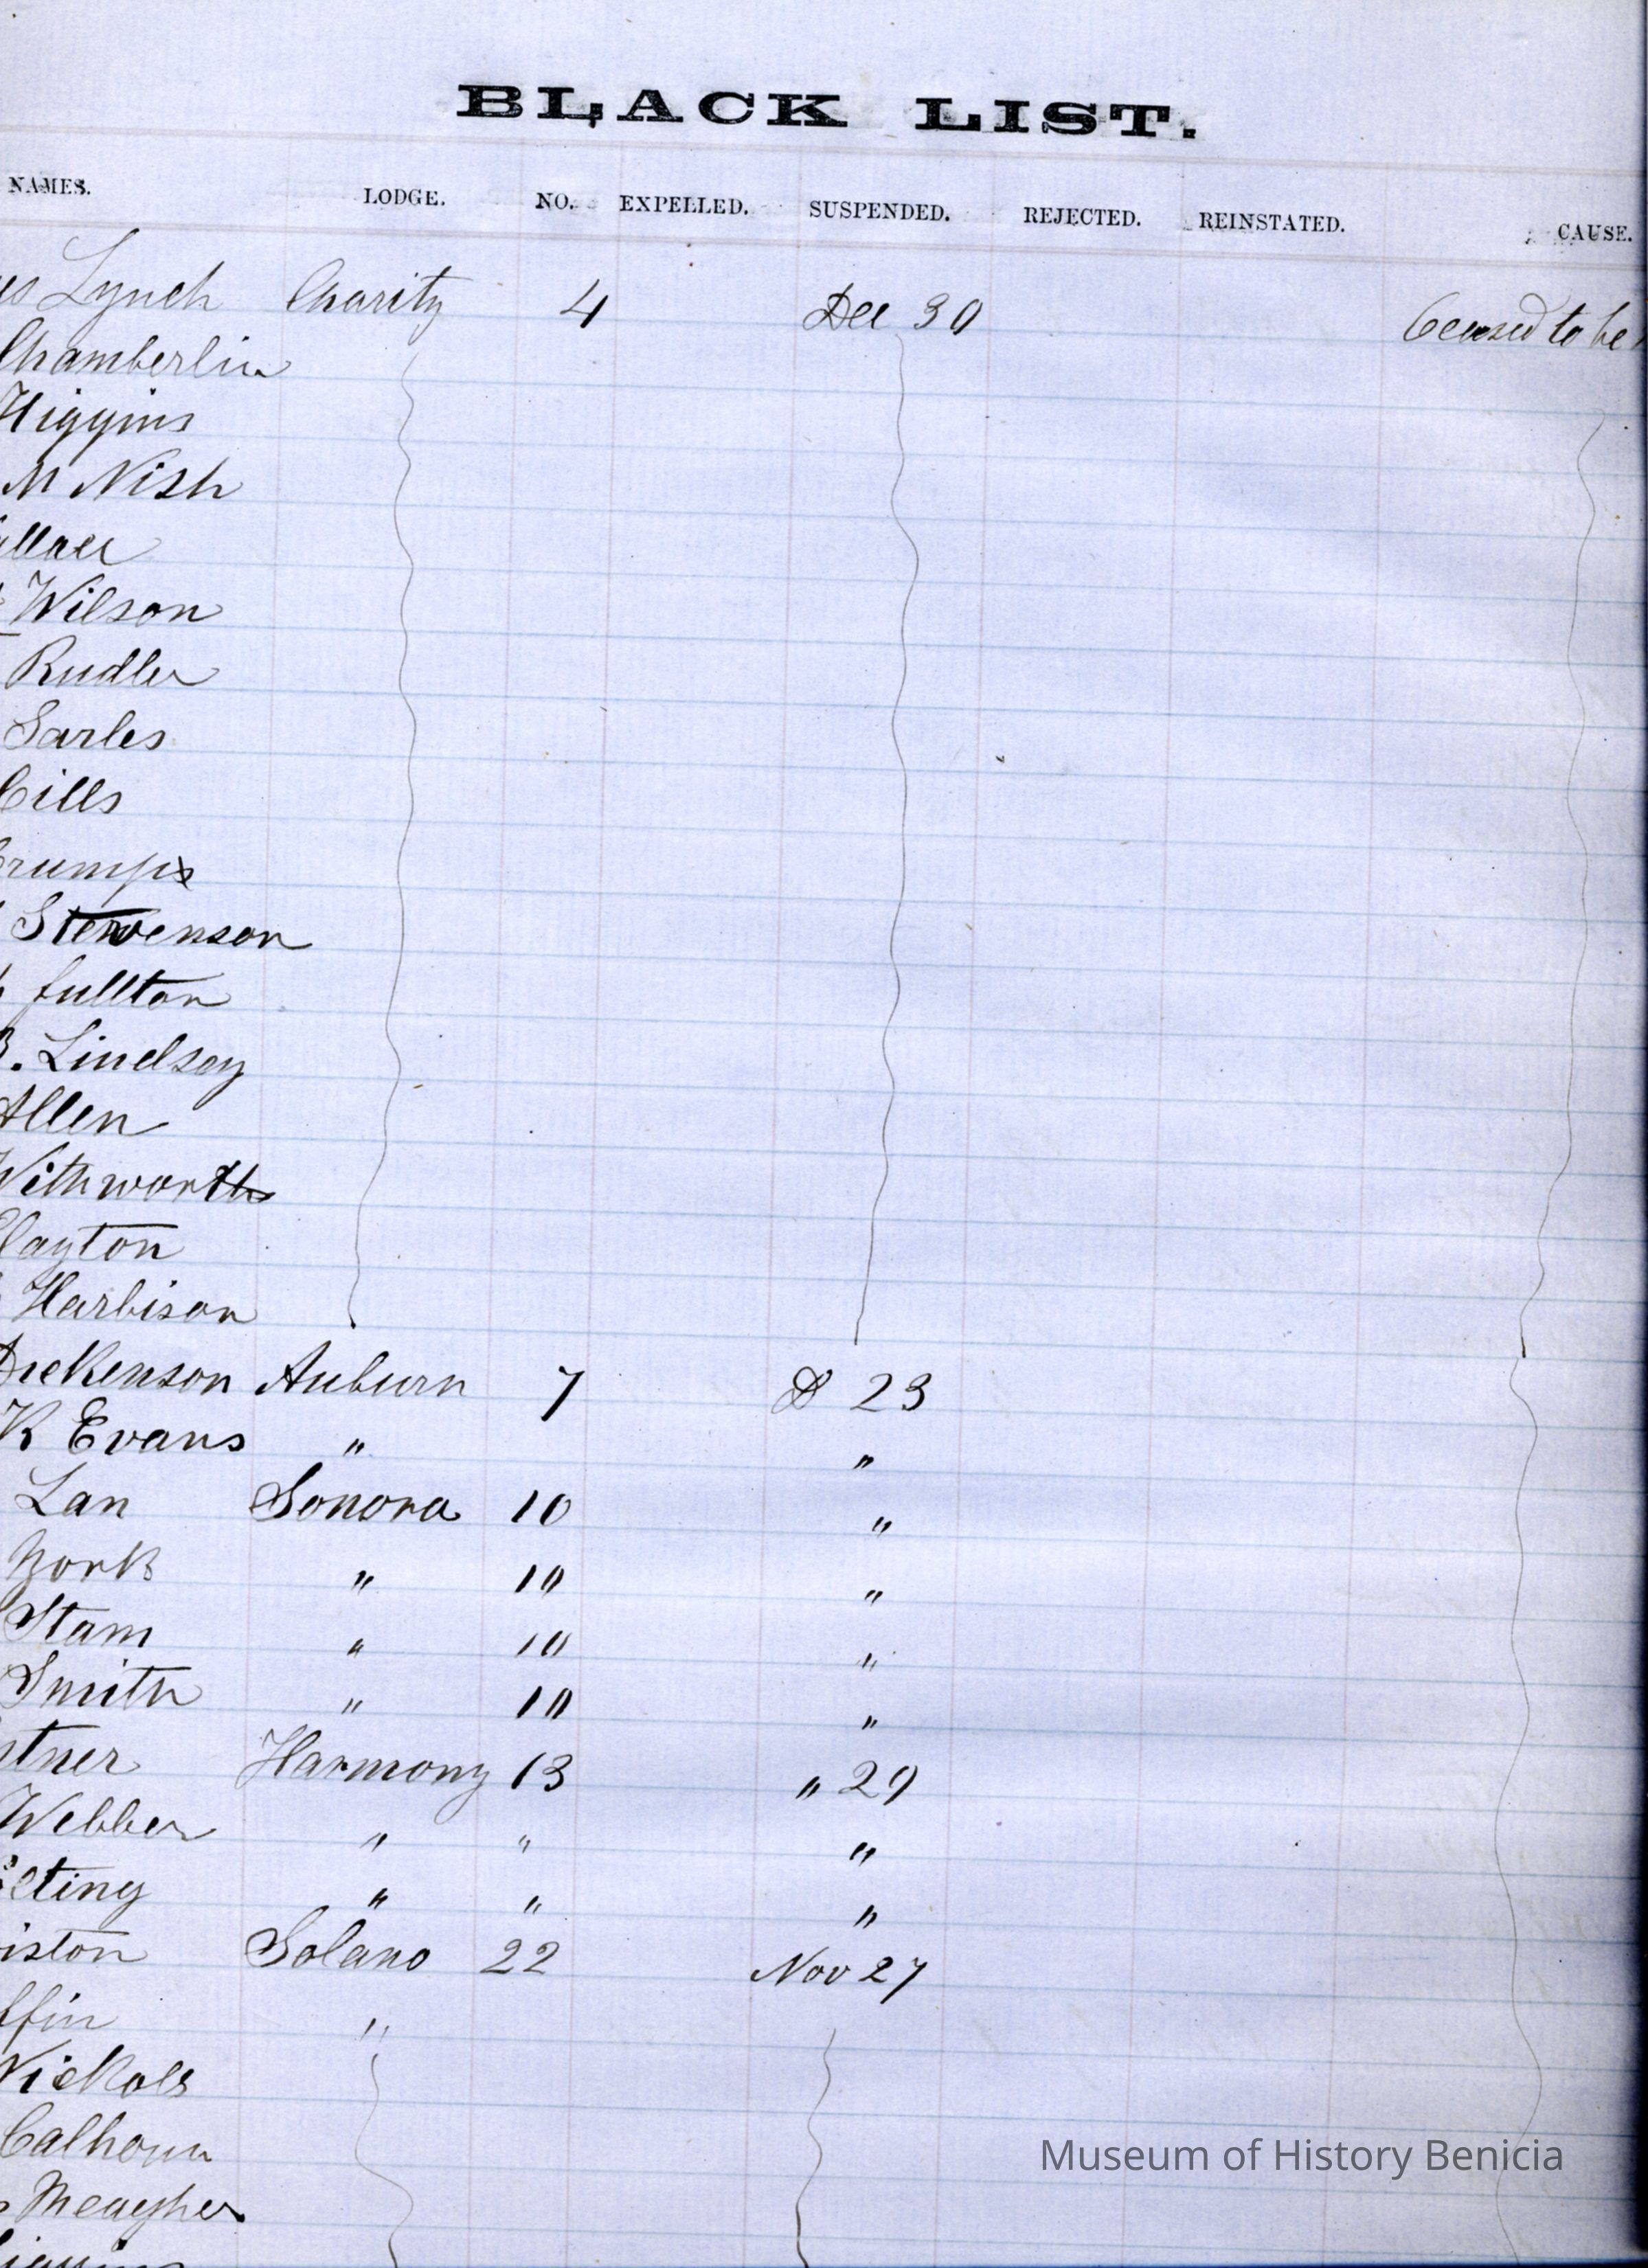 BLACK LIST.
NAMES. LODGE. NO. EXPELLED. SUSPENDED. REJECTED. REINSTATED. CAUSE.
Lynch Charity 4 Dec 30 Ceased to be
Chamberlin
Higgins
M Nish
Wilson
Rudler
Sarles
Cills
Stevenson
fullton
B. Lindsay
Allen
Withworth
Clayton
Harbison
Dickenson Auburn 7 D 23
K Evans " "
Lan Sonora 10 "
York " 10 "
Stam " 10 "
Smith " 10 "
tner Harmony 13 " 29
Webber " " "
lting " " "
iston Solano 22 Nov 27
ffin "
Nickols
Calhoun
Meagher
Museum of History Benicia